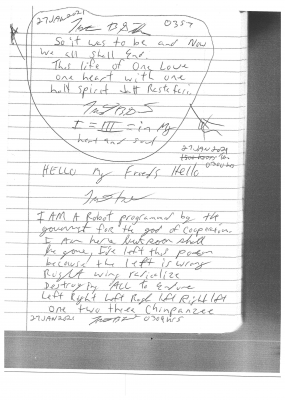 27JAN2021
0357
So it was to be and Now
we all shall End.
This life of One Love
one heart with one
half Spirit
I = III = in My
heart and soul
27JAN2021
HELLO My Friends Hello
I AM A Robot programmed by the
government for the god of
I Am here
be gone, I've left this poem
because the left is wrong
Right wing radicalize
Destroying ALL To Endure
Left Right Left Right left Right left
one two three Chimpanzee
27JAN2021 0704hrs